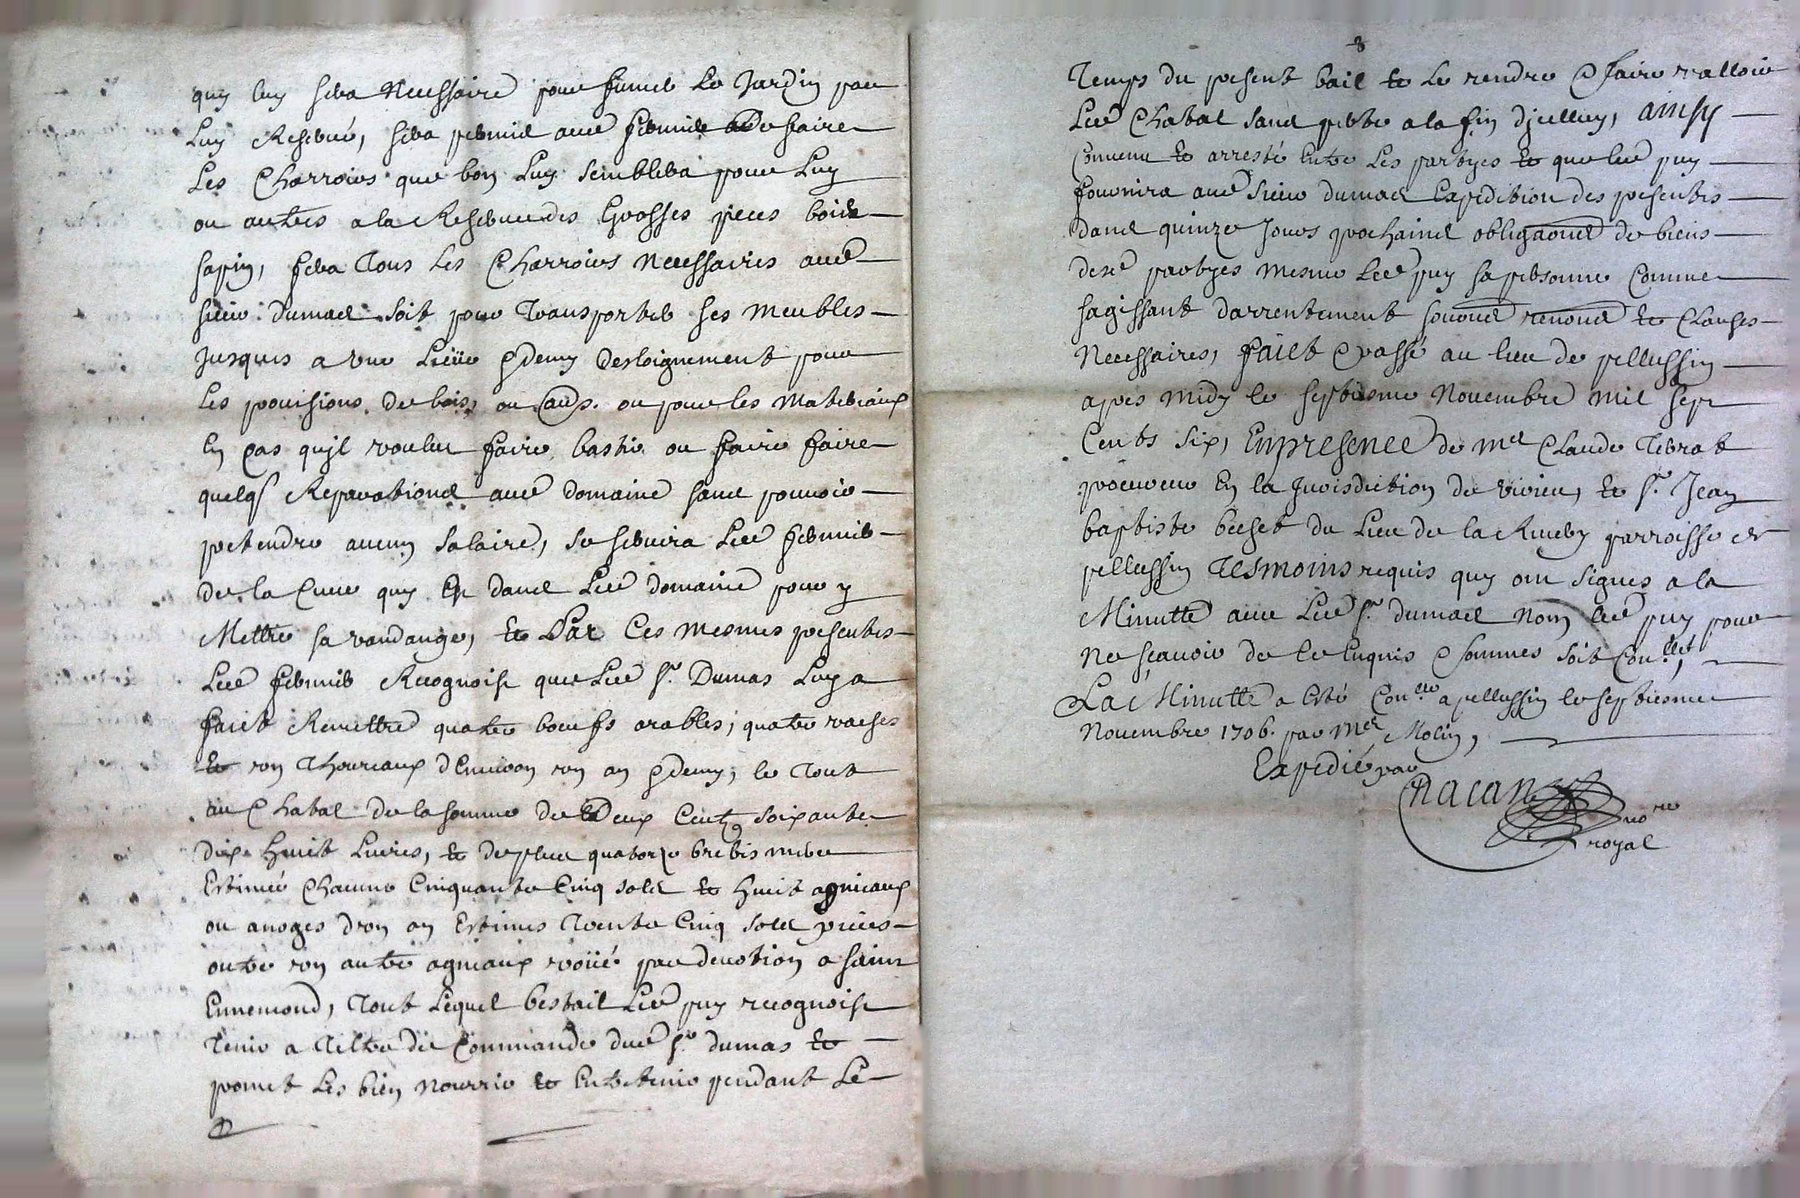 quy luy sera Necessaire pour fumer Le Jardin par
Luy Reservé, sera permis aud fermier de faire
Les Charrois que bon Luy semblera pour Luy
ou autres a la Reserve des Grosses pieces bois
sapin, fera Tous Les Charrois Necessaires aud
sieur dumas soit pour Transporter ses meubles
jusques a une Lieüe & demy desloignement pour
Les provisions de bois, ou ou pour les Materiaux
En cas quil voulut faire bastir ou faire faire
quelqs Reparations aud domaine sans pouvoir
pretendre aucun salaire, se servira Led fermier
de la Cuve quy Est dans Led domaine pour y
Mettre sa vandange, Et Par Ces mesmes presentes
Led fermier Recognoist que Led Sr. Dumas Luy a
faict Remettre quatre boeufs arables, quatre vaches
Et un Thoureaux d'Environ un an & demy, le Tout
au Chatal de la somme de Deux Cents soixante
dix huit Livres, Et de plus quatorze brebis mere
Estimée Chacune Cinquante Cinq sols Et huit agneaux
ou anoges d'un an Estimes Trente Cinq sols pieces
outre un autre agneaux voüé par devotion a saint
Ennemond, Tout Lequel bestail Led puy recognoist
Tenir a Tiltre de Commande dud Sr dumas Et
promet Les bien nourrir Et Entretenir pendant Le
Temps du present bail Et Le rendre & faire valloir
Led Chatal sans perte a la fin dicelluy, ainsy
Convenu Et arresté Entre Les partyes Et que led puy
fournira aud sieur dumas Expedition des presentes
dans quinze Jours prochains obligaons de biens
desd partyes mesme Led puy sa personne Comme
sagissant darrentement soumons renons Et Clauses
Necessaires, faict & passé au lieu de pellussin
apres midy le septiesme Novembre mil sept
Cents six, Enpresence de Me Claude Terrat
procureur En la Jurisdiction de virieu, Et Sr. Jean
baptiste du Lieu de la parroisse de
pellussin Tesmoins requis quy ont signes a la
Minutte avec Led Sr. dumas Non led puy pour
ne sçavoir de ce Enquis & sommes soit Con.llet,
La Minutte a Esté Con.llee a pellussin le septiesme
Novembre 1706. par Mer Molin,
Expedié par
nore
royal